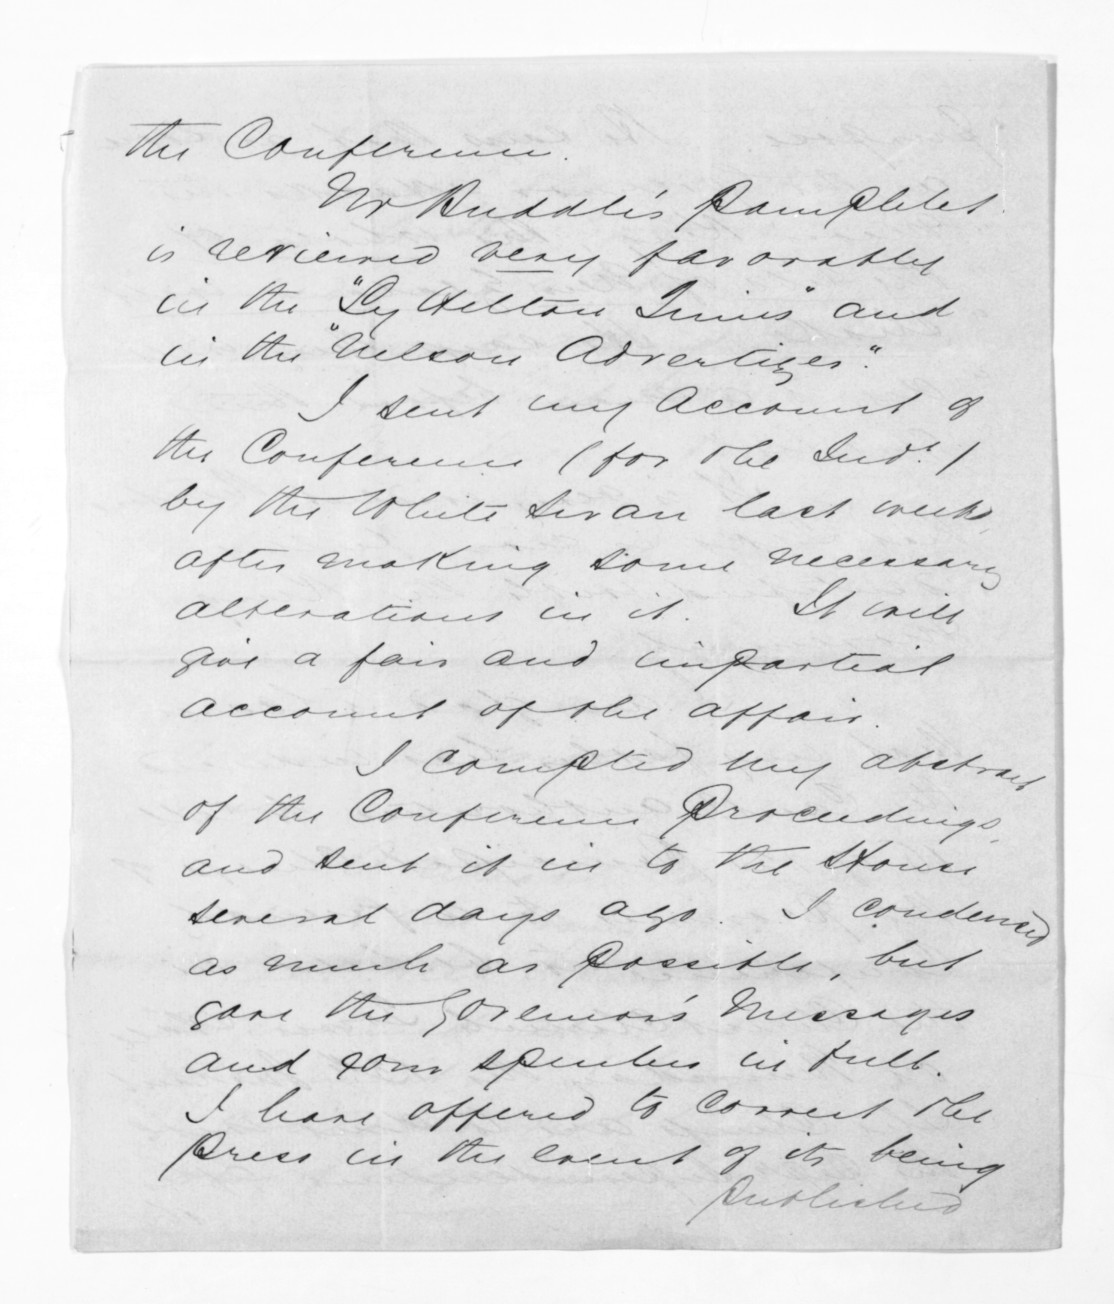 the Conference.
Mr Buddle's Pamphlet
is reviewed very favorably
in the "Lyttelton Times" and
in the "Nelson Advertizer".
I sent my Account of
the Conference (for the Ind.r)
by the White Swan last week,
after making some necessary
alterations in it. It will
give a fair and impartial
account of the affair.
I completed my abstract
of the Conference Proceedings,
and sent it in to the House
several days ago. I condensed
as much as possible, but
gave the Governor's Messages
and some speeches in full.
I have offered to correct the
Press in the event of its being
published